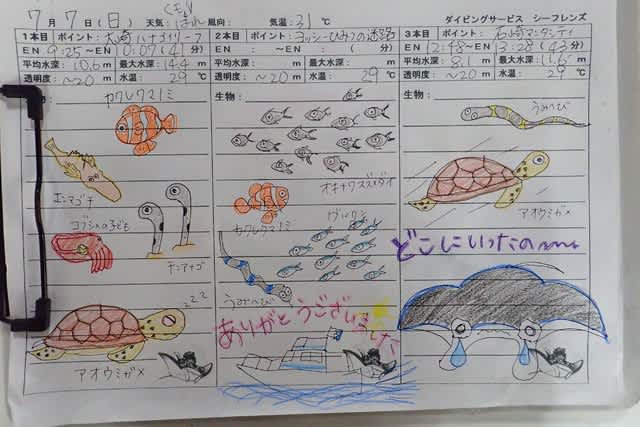 7月 7日(日) 天気: はれ 風向: 気温: 31 ℃
ダイビングサービス シーフレンズ
1本目 ポイント: 大崎ハナゴイリーフ
EN 9:25～EN 10:07(41分)
平均水深: 10.6 m 最大水深: 14.4 m
透明度: ~20 m 水温: 29 ℃
生物:
カクレクマノミ
エンマゴチ
コブシメの子ども
チンアナゴ
zzz
アオウミガメ
2本目 ポイント: ヨッシーひみつの迷路
EN : ～EN : ( 分)
平均水深: m 最大水深: m
透明度: ~20 m 水温: 29 ℃
生物:
オキナワスズメダイ
カクレクマノミ
グルクン
うみへび
ありがとうございました
3本目 ポイント: 石崎マンタシティ
EN 12:48～EN 13:28(43分)
平均水深: 8.1 m 最大水深: 11.6 m
透明度: ~20 m 水温: 29 ℃
生物:
うみへび
アオウミガメ
どこにいったの